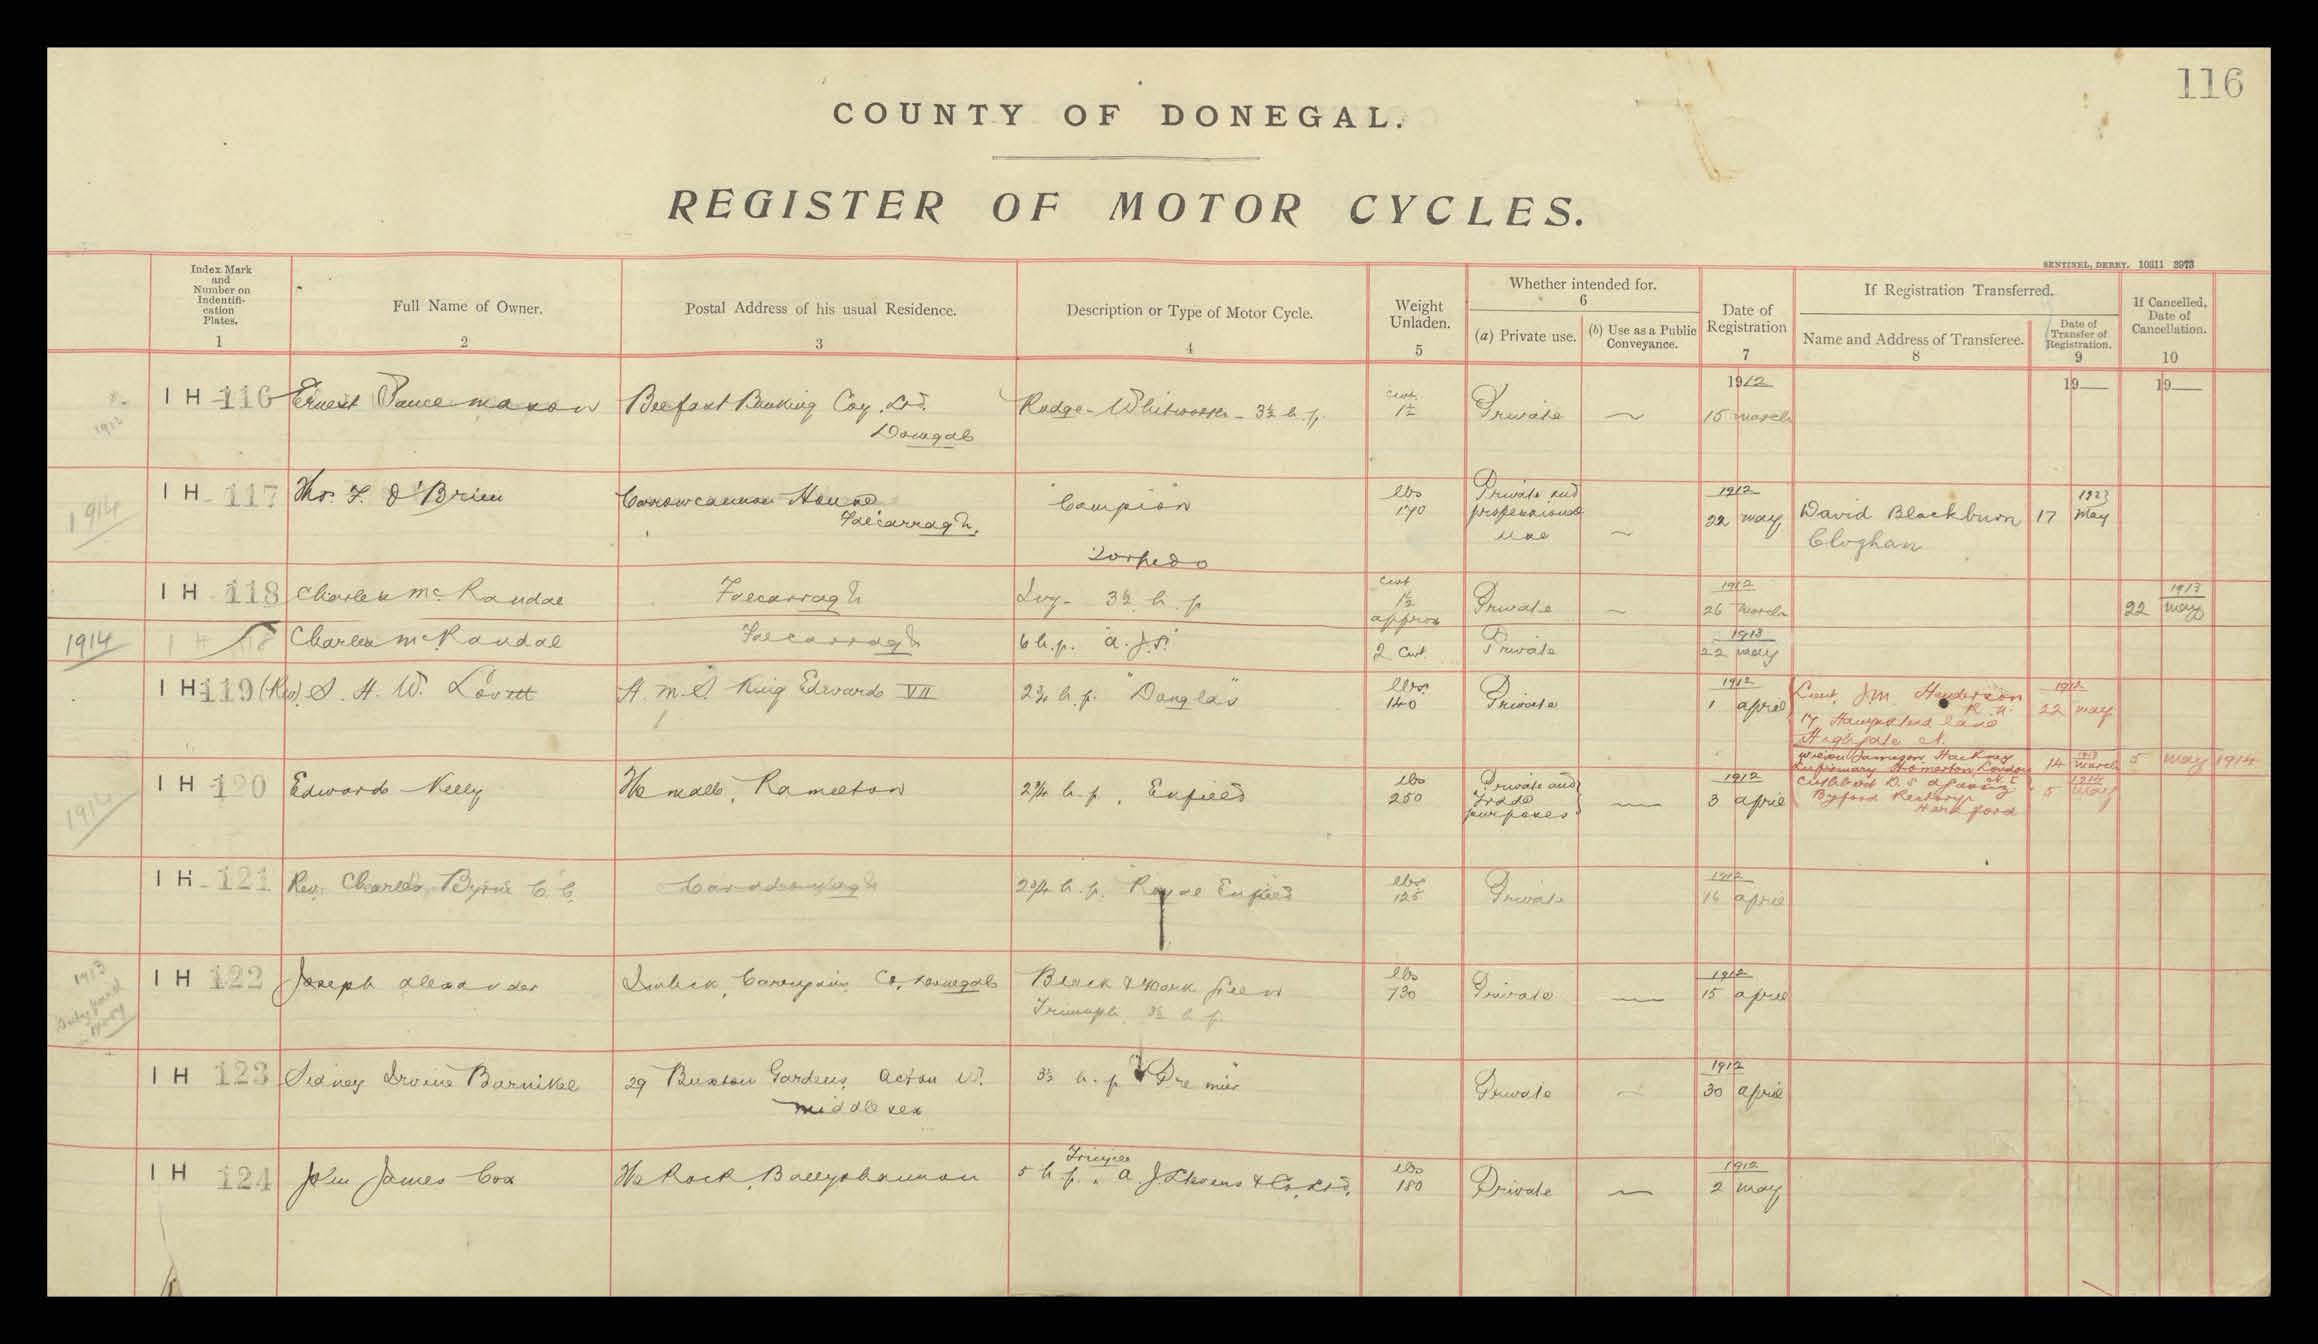 116
COUNTY OF DONEGAL.
REGISTER OF MOTOR CYCLES.
SENTINEL, DERRY. 10311 3973
Index Mark and Number on Indentifi- cation Plates.
1
Full Name of Owner.
2
Postal Address of his usual Residence.
3
Description or Type of Motor Cycle.
4
Weight Unladen.
5
Whether intended for.
6
(a) Private use.
(b) Use as a Public Conveyance.
Date of Registration
7
If Registration Transferred.
Name and Address of Transferee.
8
Date of Transfer of Registration.
9
If Cancelled, Date of Cancellation.
10
1912 19 19
IH 116 Ernest Vance Maxon Belfast Banking Coy. Ltd. Rudge-Whitworth - 3½ h.p. cwt. 1½ Private 15 March
Donegal
1912
1914 IH 117 Thos. F. O'Brien Carrowcannon House "Campion lbs 170 Private and 1912 22 May David Blackburn 17 1923 May
Falcarragh. professional Cloghan
use
Torpedo
IH 118 Charles McRandal Falcarragh Ivy - 3½ h.p cwt 1½ approx Private 1912 26 March 22 1913 May
1914 IH 118 Charles McRandal Falcarragh 6 h.p. "A.J.S." 2 cwt. Private 1913 22 May
IH 119 (Rev). S. H. W. Lovett H.M.S. King Edward VII 2¾ h.p. "Douglas" lbs. 140 Private 1912 1 April Lieut. J.M. Henderson R.N. 1912 22 May
17, Hampstead Lane
Highgate N.
Jamieson Hackney
Infirmary Homerton, London 14 1913 March 5 May 1914
1914 IH 120 Edward Kelly The Mall, Ramelton 2¾ h.p., Enfield lbs 250 Private and trade purposes 1912 3 April Cuthbert D.S. 5 1914 May
Byford Rectory
Hereford
IH 121 Rev. Charles Byrne C.C. 2¾ h.p. Royal Enfield lbs 125 Private 1912 16 April
1913
IH 122 Joseph Alexander Imlick, Carrigans Co. Donegal Black & Dark Green lbs 130 Private 1912 15 April
Triumph 3½ h.p.
IH 123 Sidney Irvine Barnikel 29 Buxton Gardens, Acton W. 3½ h.p "Premier Private 1912 30 April
Middlesex
IH 124 John James Cox The Rock, Ballyshannon 5 h.p. Tricycle, A. J. Stevens & Co. Ltd. lbs 180 Private 1912 2 May